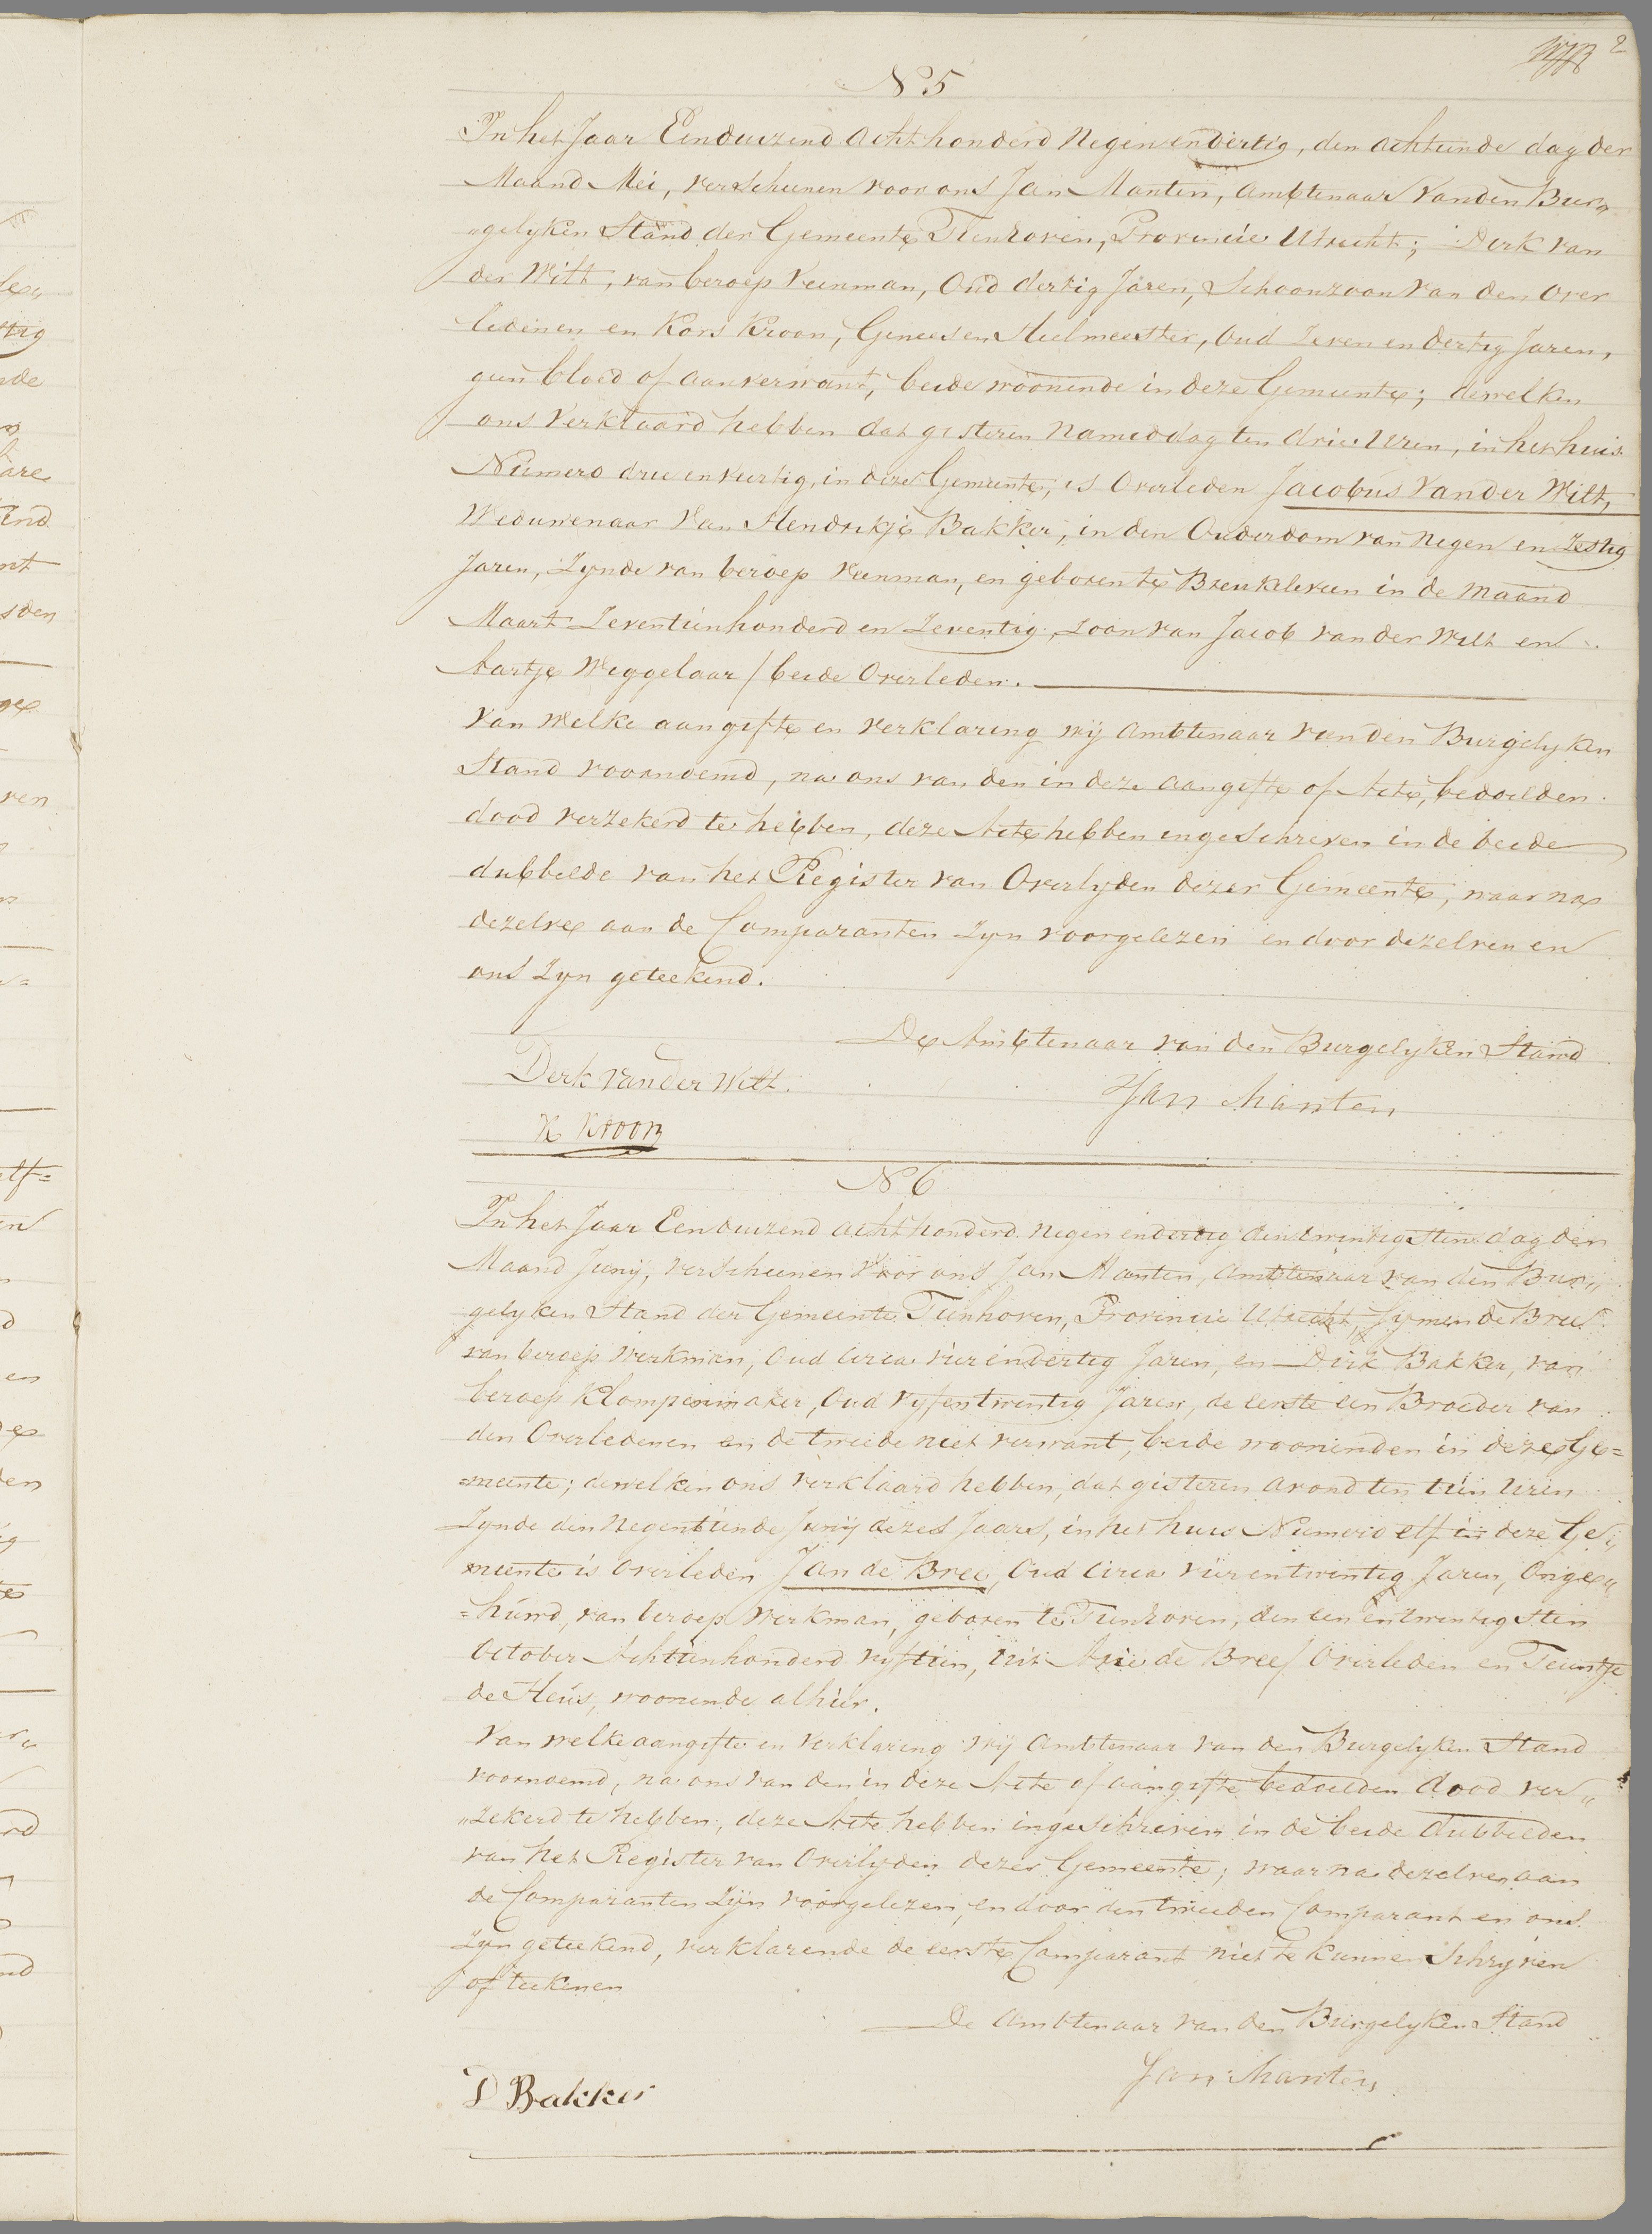 2
N 5
In het Jaar Eenduizend achthonderd Negen en dertig, den achtiende dag der
Maand Mei, verscheenen voor ons Jan Manten, Ambtenaar van den Bur„
„gelyken Stand der Gemeente Tienhoven, Provincie Utrecht; Derk van
der Wilt, van beroep Veenman, Oud dertig Jaren, Schoonzoon van den Over
ledenen en Kors Kroon, Genees en Heelmeester, Oud Zeven en dertig Jaren,
geen bloed of aanverwant, beide woonende in deze Gemeente; dewelken
ons Verklaard hebben dat gisteren Namiddag ten drie Uren, in het huis
Numero drie en veertig, in deze Gemeente, is Overleden Jacobus Van der Wilt,
Weduwenaar Van Hendrikje Bakker, in den Ouderdom van Negen en Zestig
Jaren, Zynde van beroep Veenman, en geboren te Breukeleveen in de Maand
Maart Zeventienhonderd en Zeventig, Zoon van Jacob van der Wilt en
Aartje Weggelaar / beide Overleden.
Van Welke aangifte en Verklaring wij Ambtenaar van den Burgelyken
Stand voornoemd, na ons van den in deze aangifte of Acte, bedoelden
dood verzekerd te hebben, deze Acte hebben ingeschreven in de beide
dubbelde van het Register van Overlyden dezer Gemeente, waar na
dezelve aan de Comparanten Zyn voorgelezen en door dezelven en
ons Zyn geteekend.
De Ambtenaar van den Burgelyken Stand
Derk Van der Wilt.
Jan Manten
K Kroon
N 6
In het Jaar Eenduizend achthonderd Negen en dertig den twintigsten dag der
Maand Junij, Verscheenen Voor ons Jan Manten, Ambtenaar van den Bur„
gelyken Stand der Gemeente Tienhoven, Provincie Utrecht, Symen de Bree
van beroep Werkman, Oud circa vier en dertig Jaren, en Dirk Bakker, van
beroep Klompenmaker, Oud Vyf en twintig Jaren, de eerste een Broeder van
den Overledenen en de tweede niet verwant, beide woonenden in deze Ge=
=meente; dewelken ons Verklaard hebben, dat gisteren avond ten tien Uren
Zynde den Negentiende Junij dezes Jaars, in het huis Numero elf in deze Ge„
meente is overleden Jan de Bree, Oud circa vier en twintig Jaren, Onge„
=huwd, van beroep Werkman, geboren te Tienhoven, den een en twintigsten
October Achtienhonderd vyftien, Uit Arie de Bree / Overleden en Teuntje
de Heus, woonende alhier.
Van welke aangifte en Verklaring wij Ambtenaar van den Burgelyken Stand
voornoemd, na ons van den in deze Acte of aangifte bedoelden dood ver„
„zekerd te hebben, deze Acte hebben ingeschreven in de beide dubbelden
van het Register van Overlyden dezer Gemeente; waar na dezelven aan
de Comparanten Zijn voorgelezen, en door den tweeden Comparant en ons
Zyn geteekend, verklarende de eerste Comparant niet te kunnen Schryven
of teekenen
De Ambtenaar van den Burgelyken Stand
Jan Manten
D Bakker